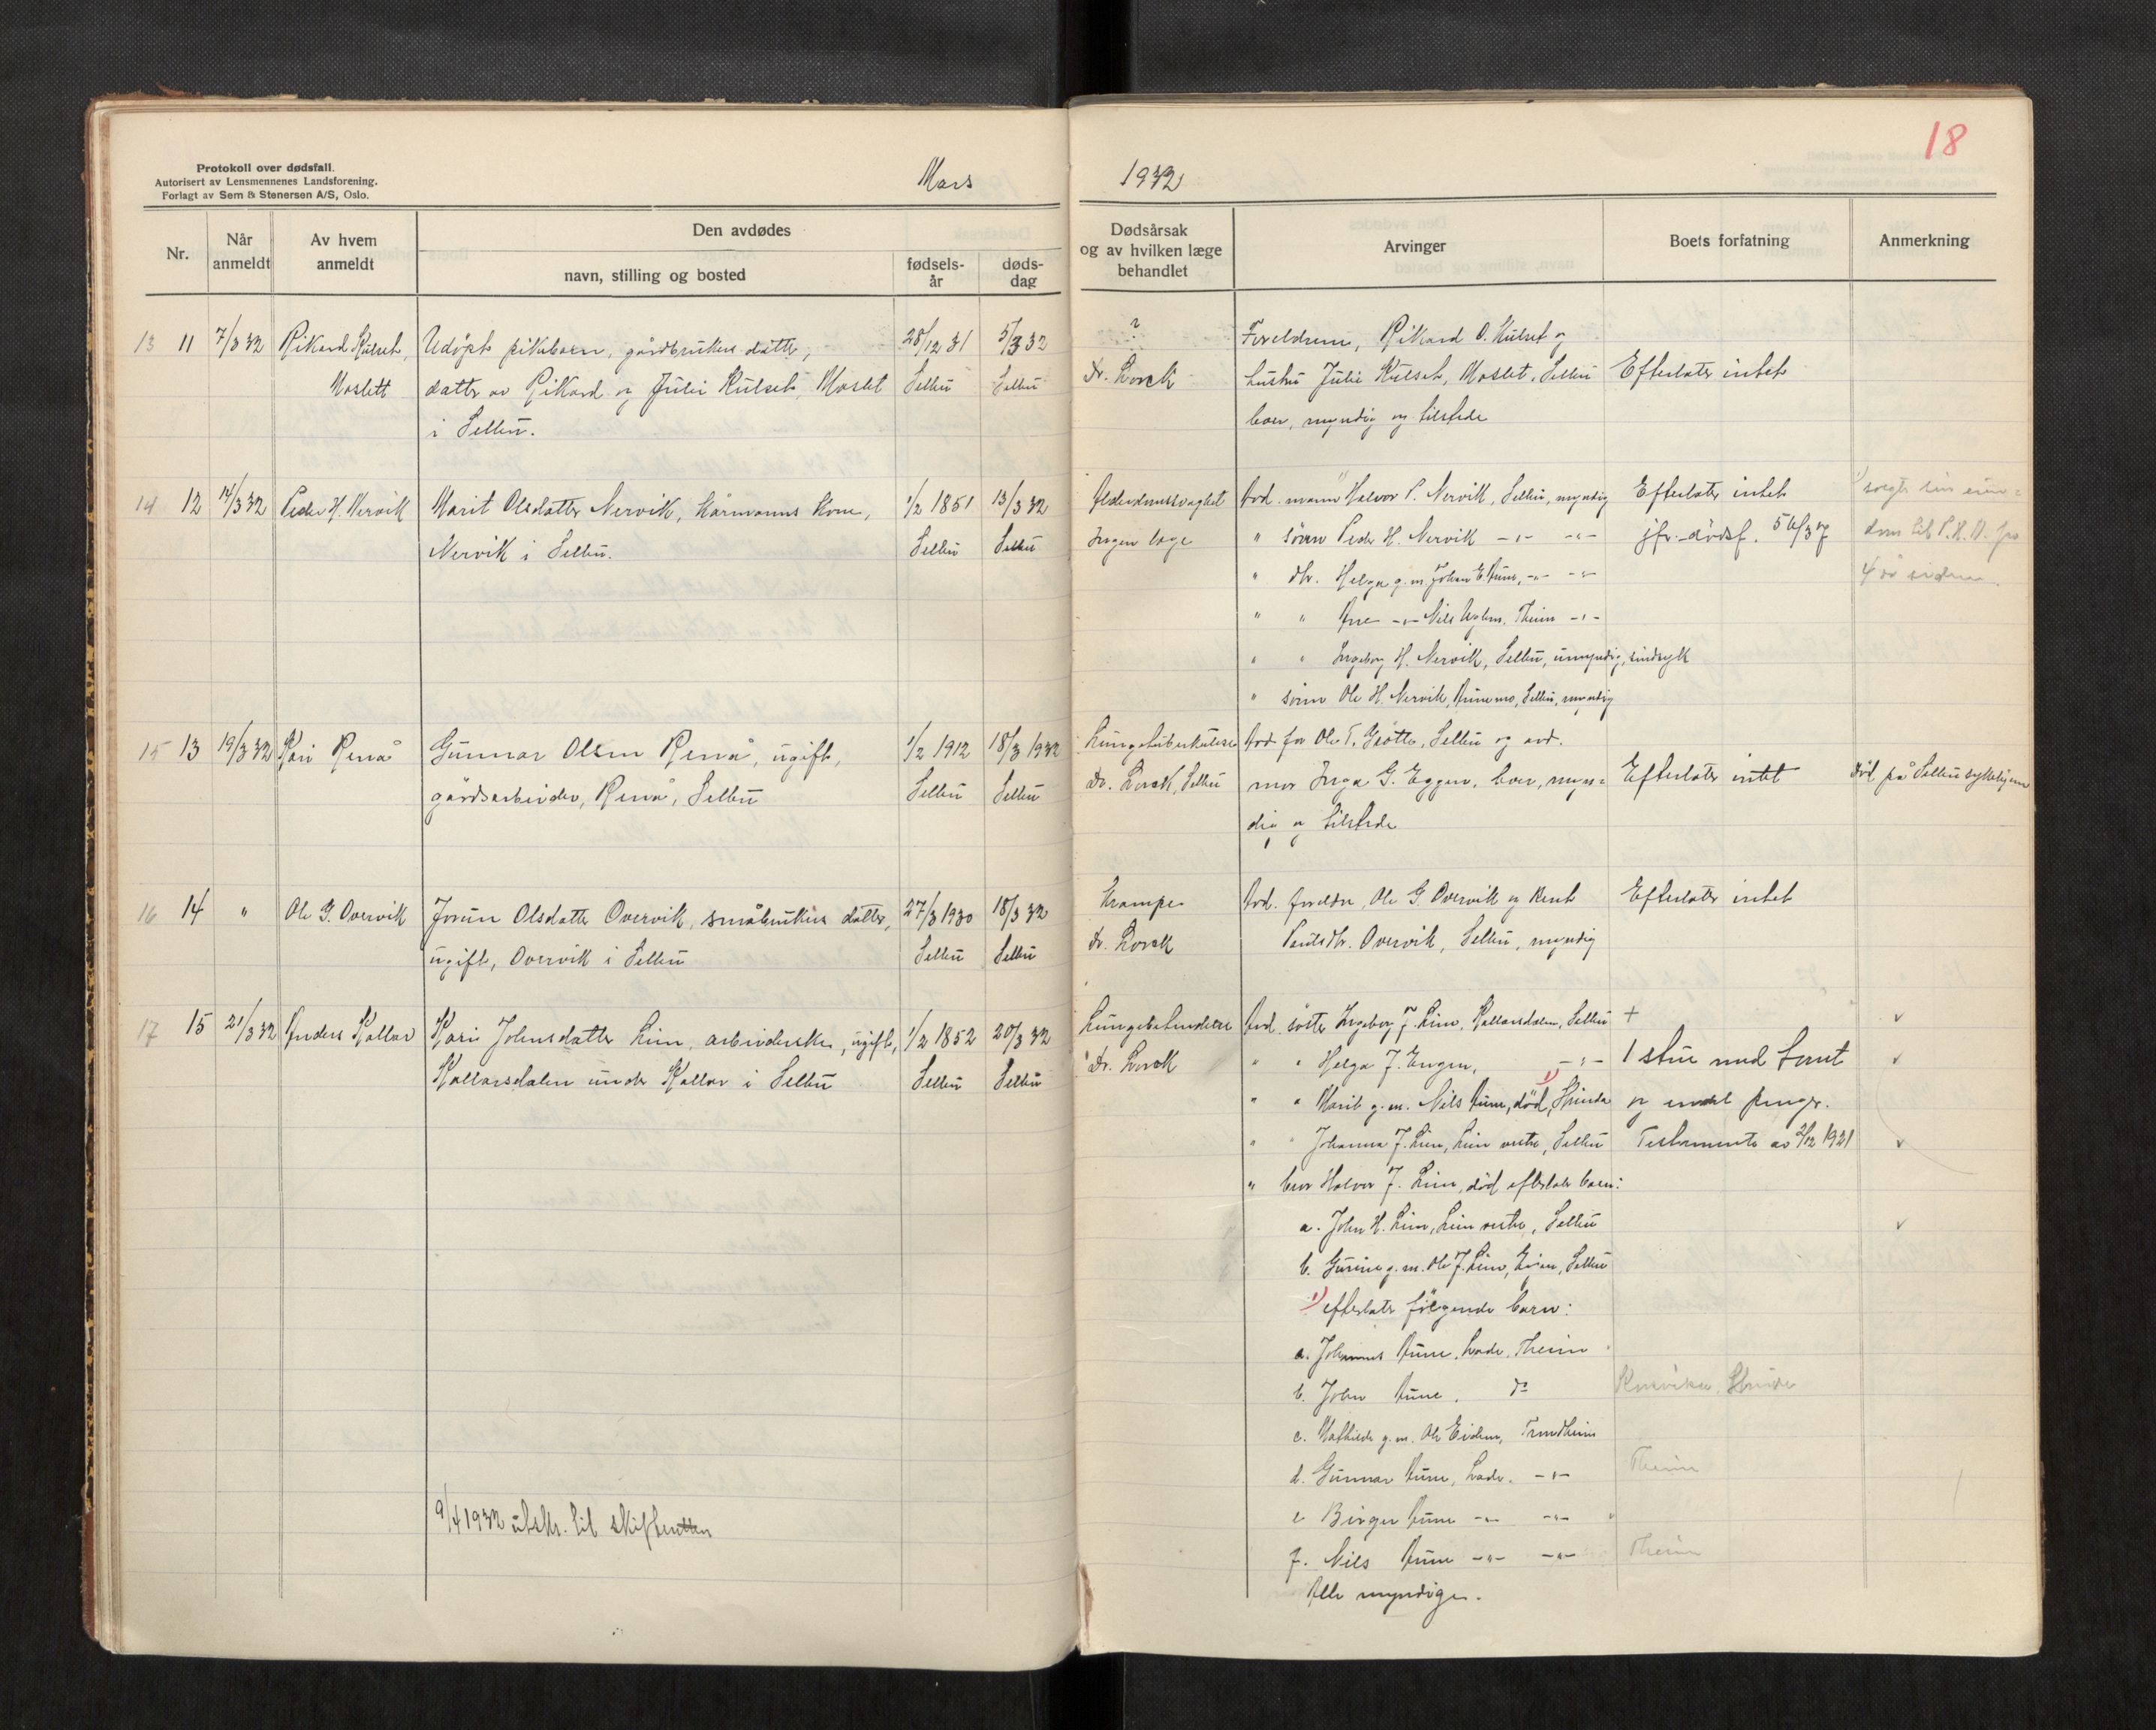 Protokoll over dødsfall.
Autorisert av Lensmennenes Landsforening.
Forlagt av Sem & Stenersen A/S, Oslo.
Mars
1932
18
Nr.
Når anmeldt
Av hvem anmeldt
Den avdødes
navn, stilling og bosted
fødsels-år
døds-dag
Dødsårsak og av hvilken læge behandlet
Arvinger
Boets forfatning
Anmerkning
13 11 7/3 32 Rikard Kulset, Udøpt pikebarn, gårdbrukers datter, 28/12 31 5/3 32
Moslett datter av Rikard og Julie Kulset, Moslet Selbu Selbu
i Selbu.
? Foreldrene, Rikard O. Kulset og
Dr. Lorck hustru Julie Kulset, Moslet, Selbu Efterlater intet
boer, myndig og tilstede
14 12 14/3 32 Peder H. Nervik Marit Olsdatter Nervik, kårmanns kone, 1/2 1851 13/3 32
Nervik i Selbu. Selbu Selbu
Alderdomssvaghet Avd. mann Halvor P. Nervik, Selbu, myndig Efterlater intet
Ingen læge " sønn Peder H. Nervik -"- -"- jfr. dødsf. 56/37
" dtr. Helga g.m. Johan E. Aune, -"- -"-
" " Ane -"- Nils Uglem, Theim -"-
" " Ingeborg H. Nervik, Selbu, umyndig, sindsyk
" sønn Ole H. Nervik, Aunemo, Selbu, myndig
1) solgte sin eien=
dom til P. H. N. for
4 år siden.
15 13 19/3 32 Kari Renå Gunnar Olsen Renå, ugift, 1/2 1912 18/3 1932
gårdsarbeider, Renå, Selbu Selbu Selbu
Lungetuberkulose Avd. far Ole T. Grøtte, Selbu og avd.
Dr. Lorck, Selbu mor Inga G. Eggen, boer, myn= Efterlater intet Død på Selbu sykehjem
dig og tilstede
16 14 " Ole G. Overvik Jorun Olsdatter Overvik, småbrukers datter, 27/3 1930 18/3 32
ugift, Overvik i Selbu Selbu Selbu
Krampe Avd. foreldre Ole G. Overvik og Beret Efterlater intet
Dr. Lorck Paulsdtr. Overvik, Selbu, myndig
17 15 21/3 32 Anders Kallar Kari Johnsdatter Lien, arbeiderske, ugift, 1/2 1852 20/3 32
Kallarsdalen under Kallar i Selbu Selbu Selbu
Lungebetendelse Avd. søster Ingeborg J. Lien, Kallarsdalen, Selbu + v
Dr. Lorck " " Helga J. Engen, -"- 1 stue med tomt v
" " Marit g.m. Nils Aune, død, 1) Strinda og endel penger.
" " Johanna J. Lien, Lien vestre, Selbu Testamente av 2/12 1921 v
" bror Halvor J. Lien, død efterlater barn:
a. John H. Lien, Lien vestre, Selbu v
b. Gurine g.m. Ole J. Lien, Engen, Selbu
1) efterlater følgende barn:
a. Johannes Aune, Lade, Theim
b. John Aune, do Strinda
c. Mathilde g.m. Ole Eidem, Trondheim
d. Gunnar Aune, Lade, -"- Theim
e Birger Aune -"- -"-
f. Nils Aune -"- -"- Theim
Alle myndige.
9/4 1932 utskr. til skifteretten